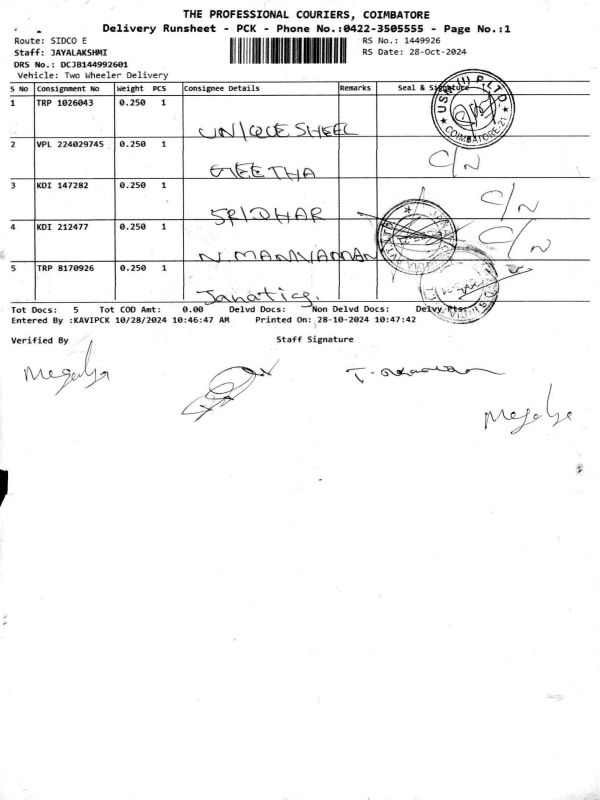 THE PROFESSIONAL COURIERS, COIMBATORE
Delivery Runsheet - PCK - Phone No.:0422-3505555 - Page No.:1
Route: SIDCO E RS No.: 1449926
Staff: JAYALAKSHMI RS Date: 28-Oct-2024
DRS No.: DCJB144992601
Vehicle: Two Wheeler Delivery
S No Consignment No Weight PCS Consignee Details Remarks Seal & Signature
1 TRP 1026043 0.250 1
UNIQUE SHEEL
2 VPL 224029745 0.250 1 C/N
GEETHA
3 KDI 147282 0.250 1 C/N
SRIDHAR
4 KDI 212477 0.250 1 C/N
N. MANIVANNAN
5 TRP 8170926 0.250 1
Janatics.
COIMBATORE-21
Tot Docs: 5 Tot COD Amt: 0.00 Delvd Docs: Non Delvd Docs: Delvy Pts:
Entered By :KAVIPCK 10/28/2024 10:46:47 AM Printed On: 28-10-2024 10:47:42
Verified By Staff Signature